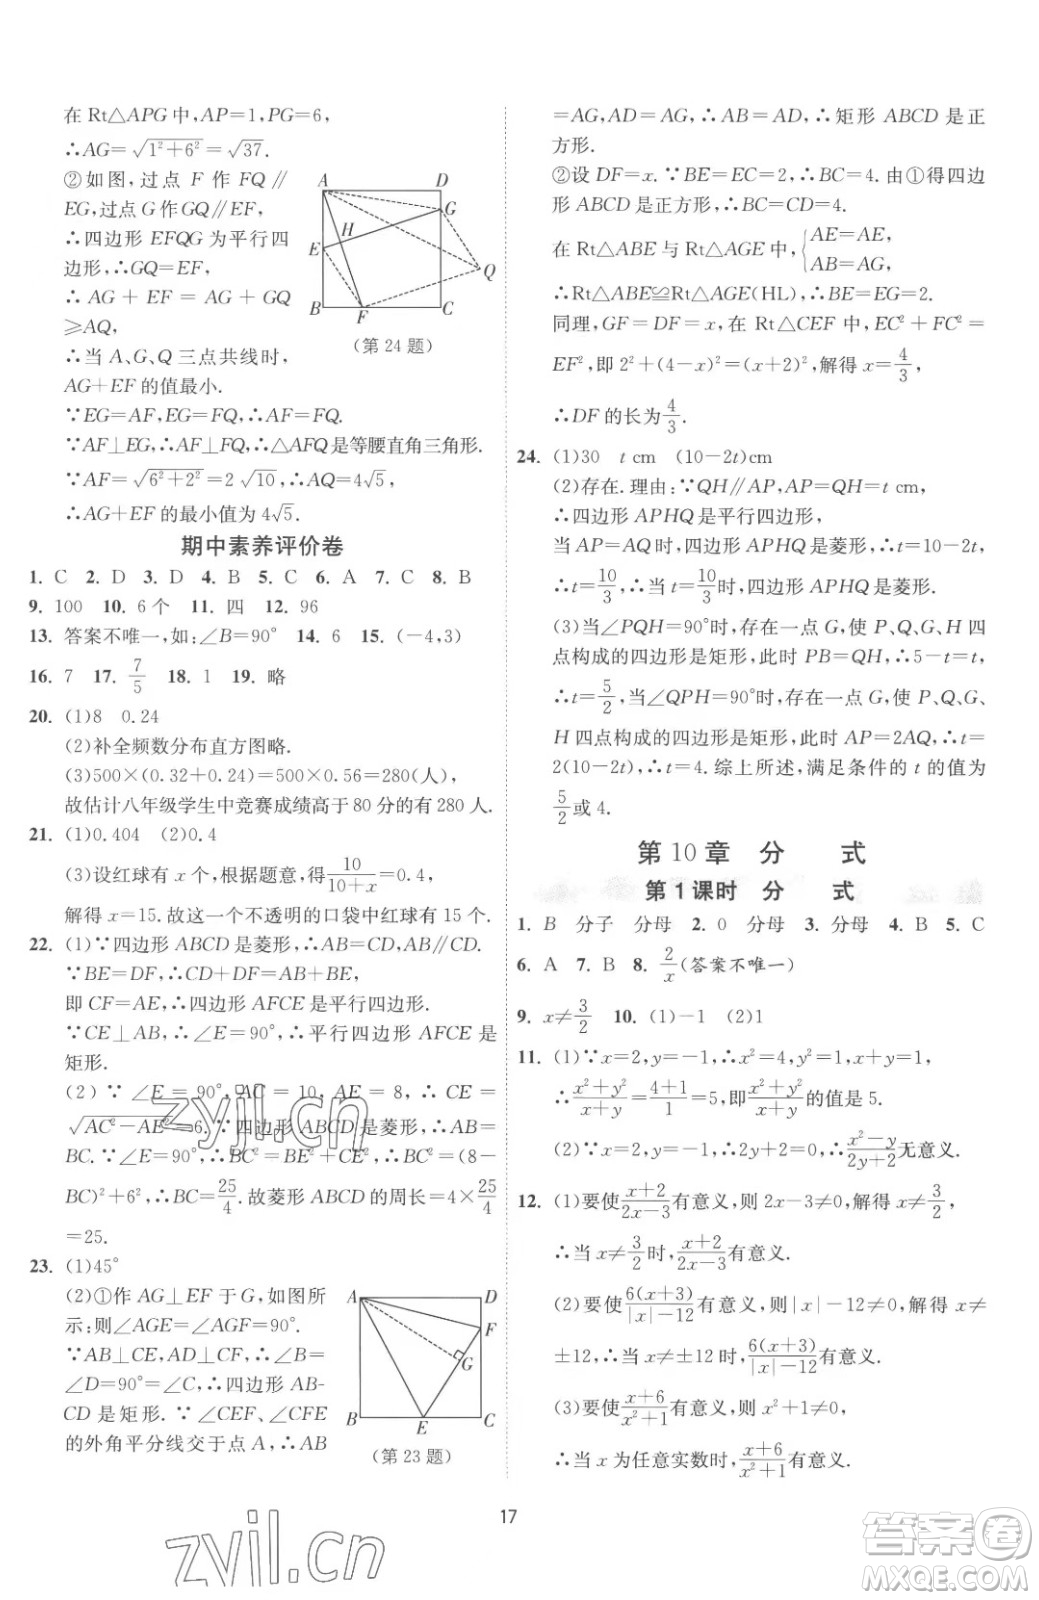 在 Rt△APG 中,AP=1,PG=6,
∴AG=√(1²+6²)=√37.
②如图,过点 F 作 FQ∥
EG,过点 G 作 GQ∥EF,
∴四边形 EFQG 为平行四
边形,∴GQ=EF,
∴ AG + EF = AG + GQ
≥AQ,
∴当 A、G、Q 三点共线时,
AG+EF 的值最小.
A D G H E Q B F C
(第 24 题)
∵EG=AF,EG=FQ,∴AF=FQ.
∵AF⊥EG,∴AF⊥FQ,∴△AFQ是等腰直角三角形.
∵AF=√(6²+2²)=2√10,∴AQ=4√5,
∴AG+EF 的最小值为 4√5.
期中素养评价卷
1. C 2. D 3. D 4. B 5. C 6. A 7. C 8. B
9. 100 10. 6个 11. 四 12. 96
13. 答案不唯一,如:∠B=90° 14. 6 15. (-4,3)
16. 7 17. 7/5 18. 1 19. 略
20. (1)8 0.24
(2)补全频数分布直方图略.
(3)500×(0.32+0.24)=500×0.56=280(人),
故估计八年级学生中竞赛成绩高于 80 分的有 280 人.
21. (1)0.404 (2)0.4
(3)设红球有 x 个,根据题意得 10/(10+x)=0.4,
解得 x=15. 故这一个不透明的口袋中红球有 15 个.
22. (1)∵四边形 ABCD 是菱形,∴AB=CD,AB∥CD.
∵BE=DF,∴CD+DF=AB+BE,
即 CF=AE,∴四边形 AFCE 是平行四边形.
∵CE⊥AB,∴∠E=90°,∴平行四边形 AFCE 是
矩形.
(2) ∵ ∠E = 90°, AC = 10, AE = 8, ∴ CE =
√(AC²-AE²)=6. ∵四边形 ABCD 是菱形,∴AB=
BC. ∵∠E=90°,∴BC²=BE²+CE²,∴BC²=(8-
BC)²+6²,∴BC=25/4. 故菱形 ABCD 的周长=4×25/4
=25.
23. (1)45°
(2)①作 AG⊥EF 于 G,如图所
示:则∠AGE=∠AGF=90°.
∵AB⊥CE,AD⊥CF,∴∠B=
∠D=90°=∠C,∴四边形 AB-
CD 是矩形. ∵∠CEF、∠CFE
的外角平分线交于点 A,∴AB
A D F G B E C
(第 23 题)
=AG,AD=AG,∴AB=AD,∴矩形 ABCD 是正
方形.
②设 DF=x. ∵BE=EC=2,∴BC=4. 由①得四边
形 ABCD 是正方形,∴BC=CD=4.
在 Rt△ABE 与 Rt△AGE 中,{AE=AE, AB=AG,
∴Rt△ABE≌Rt△AGE(HL),∴BE=EG=2.
同理,GF=DF=x,在 Rt△CEF 中,EC²+FC²=
EF²,即 2²+(4-x)²=(x+2)²,解得 x=4/3,
∴DF 的长为4/3.
24. (1)30 t cm (10-2t)cm
(2)存在. 理由:∵QH∥AP,AP=QH=t cm,
∴四边形 APHQ 是平行四边形,
当 AP=AQ 时,四边形 APHQ 是菱形,∴t=10-2t,
∴t=10/3,∴当 t=10/3时,四边形 APHQ 是菱形.
(3)当∠PQH=90°时,存在一点 G,使 P、Q、G、H 四
点构成的四边形是矩形,此时 PB=QH,∴5-t=t,
∴t=5/2,当∠QPH=90°时,存在一点 G,使 P、Q、G、
H 四点构成的四边形是矩形,此时 AP=2AQ,∴t=
2(10-2t),∴t=4. 综上所述,满足条件的 t 的值为
5/2或 4.
第 10 章 分 式
第 1 课时 分 式
1. B 分子 分母 2. 0 分母 3. 分母 4. B 5. C
6. A 7. B 8. 2/x(答案不唯一)
9. x≠3/2 10. (1)-1 (2)1
11. (1)∵x=2,y=-1,∴x²=4,y²=1,
∴(x²+y²)/(x+y)=(4+1)/1=5,即(x²+y²)/(x+y)的值是 5.
(2)∵x=2,y=-1,∴x+2y=0,∴(x²-y)/(2y+x)无意义.
12. (1)要使(x+2)/(2x-3)有意义,则 2x-3≠0,解得 x≠3/2,
∴当 x≠3/2时,(x+2)/(2x-3)有意义.
(2)要使6(x+3)/(|x|-12)有意义,则|x|-12≠0,解得 x≠
±12,∴当 x≠±12 时,6(x+3)/(|x|-12)有意义.
(3)要使(x+6)/(x²+1)有意义,则 x²+1≠0,
∴当 x 为任意实数时,(x+6)/(x²+1)有意义.
17
zyjl.cn
zyjl.cn
答案圈
MXQE.COM